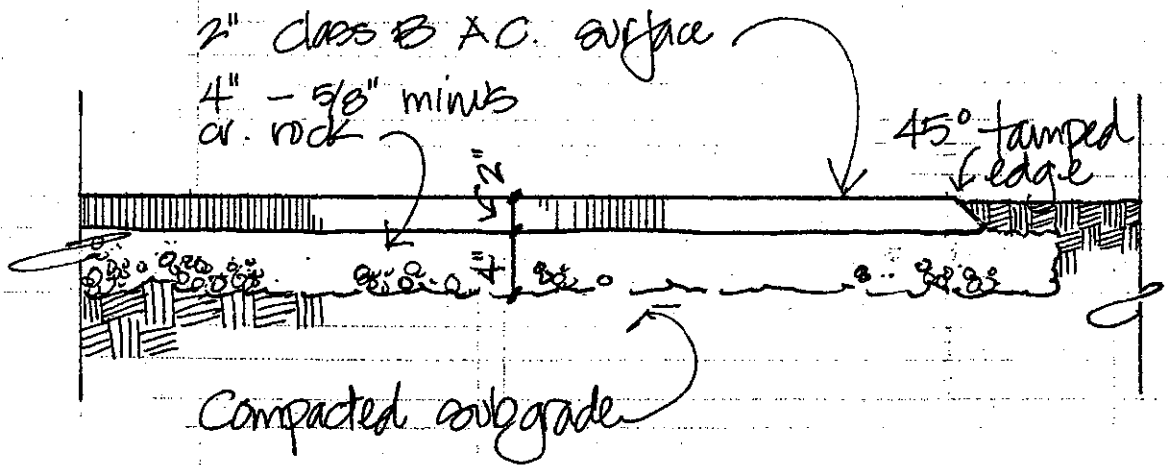 2" Class B A.C. surface
4" - 5/8" minus
cr. rock
45° tamped
edge
2"
4"
Compacted subgrade